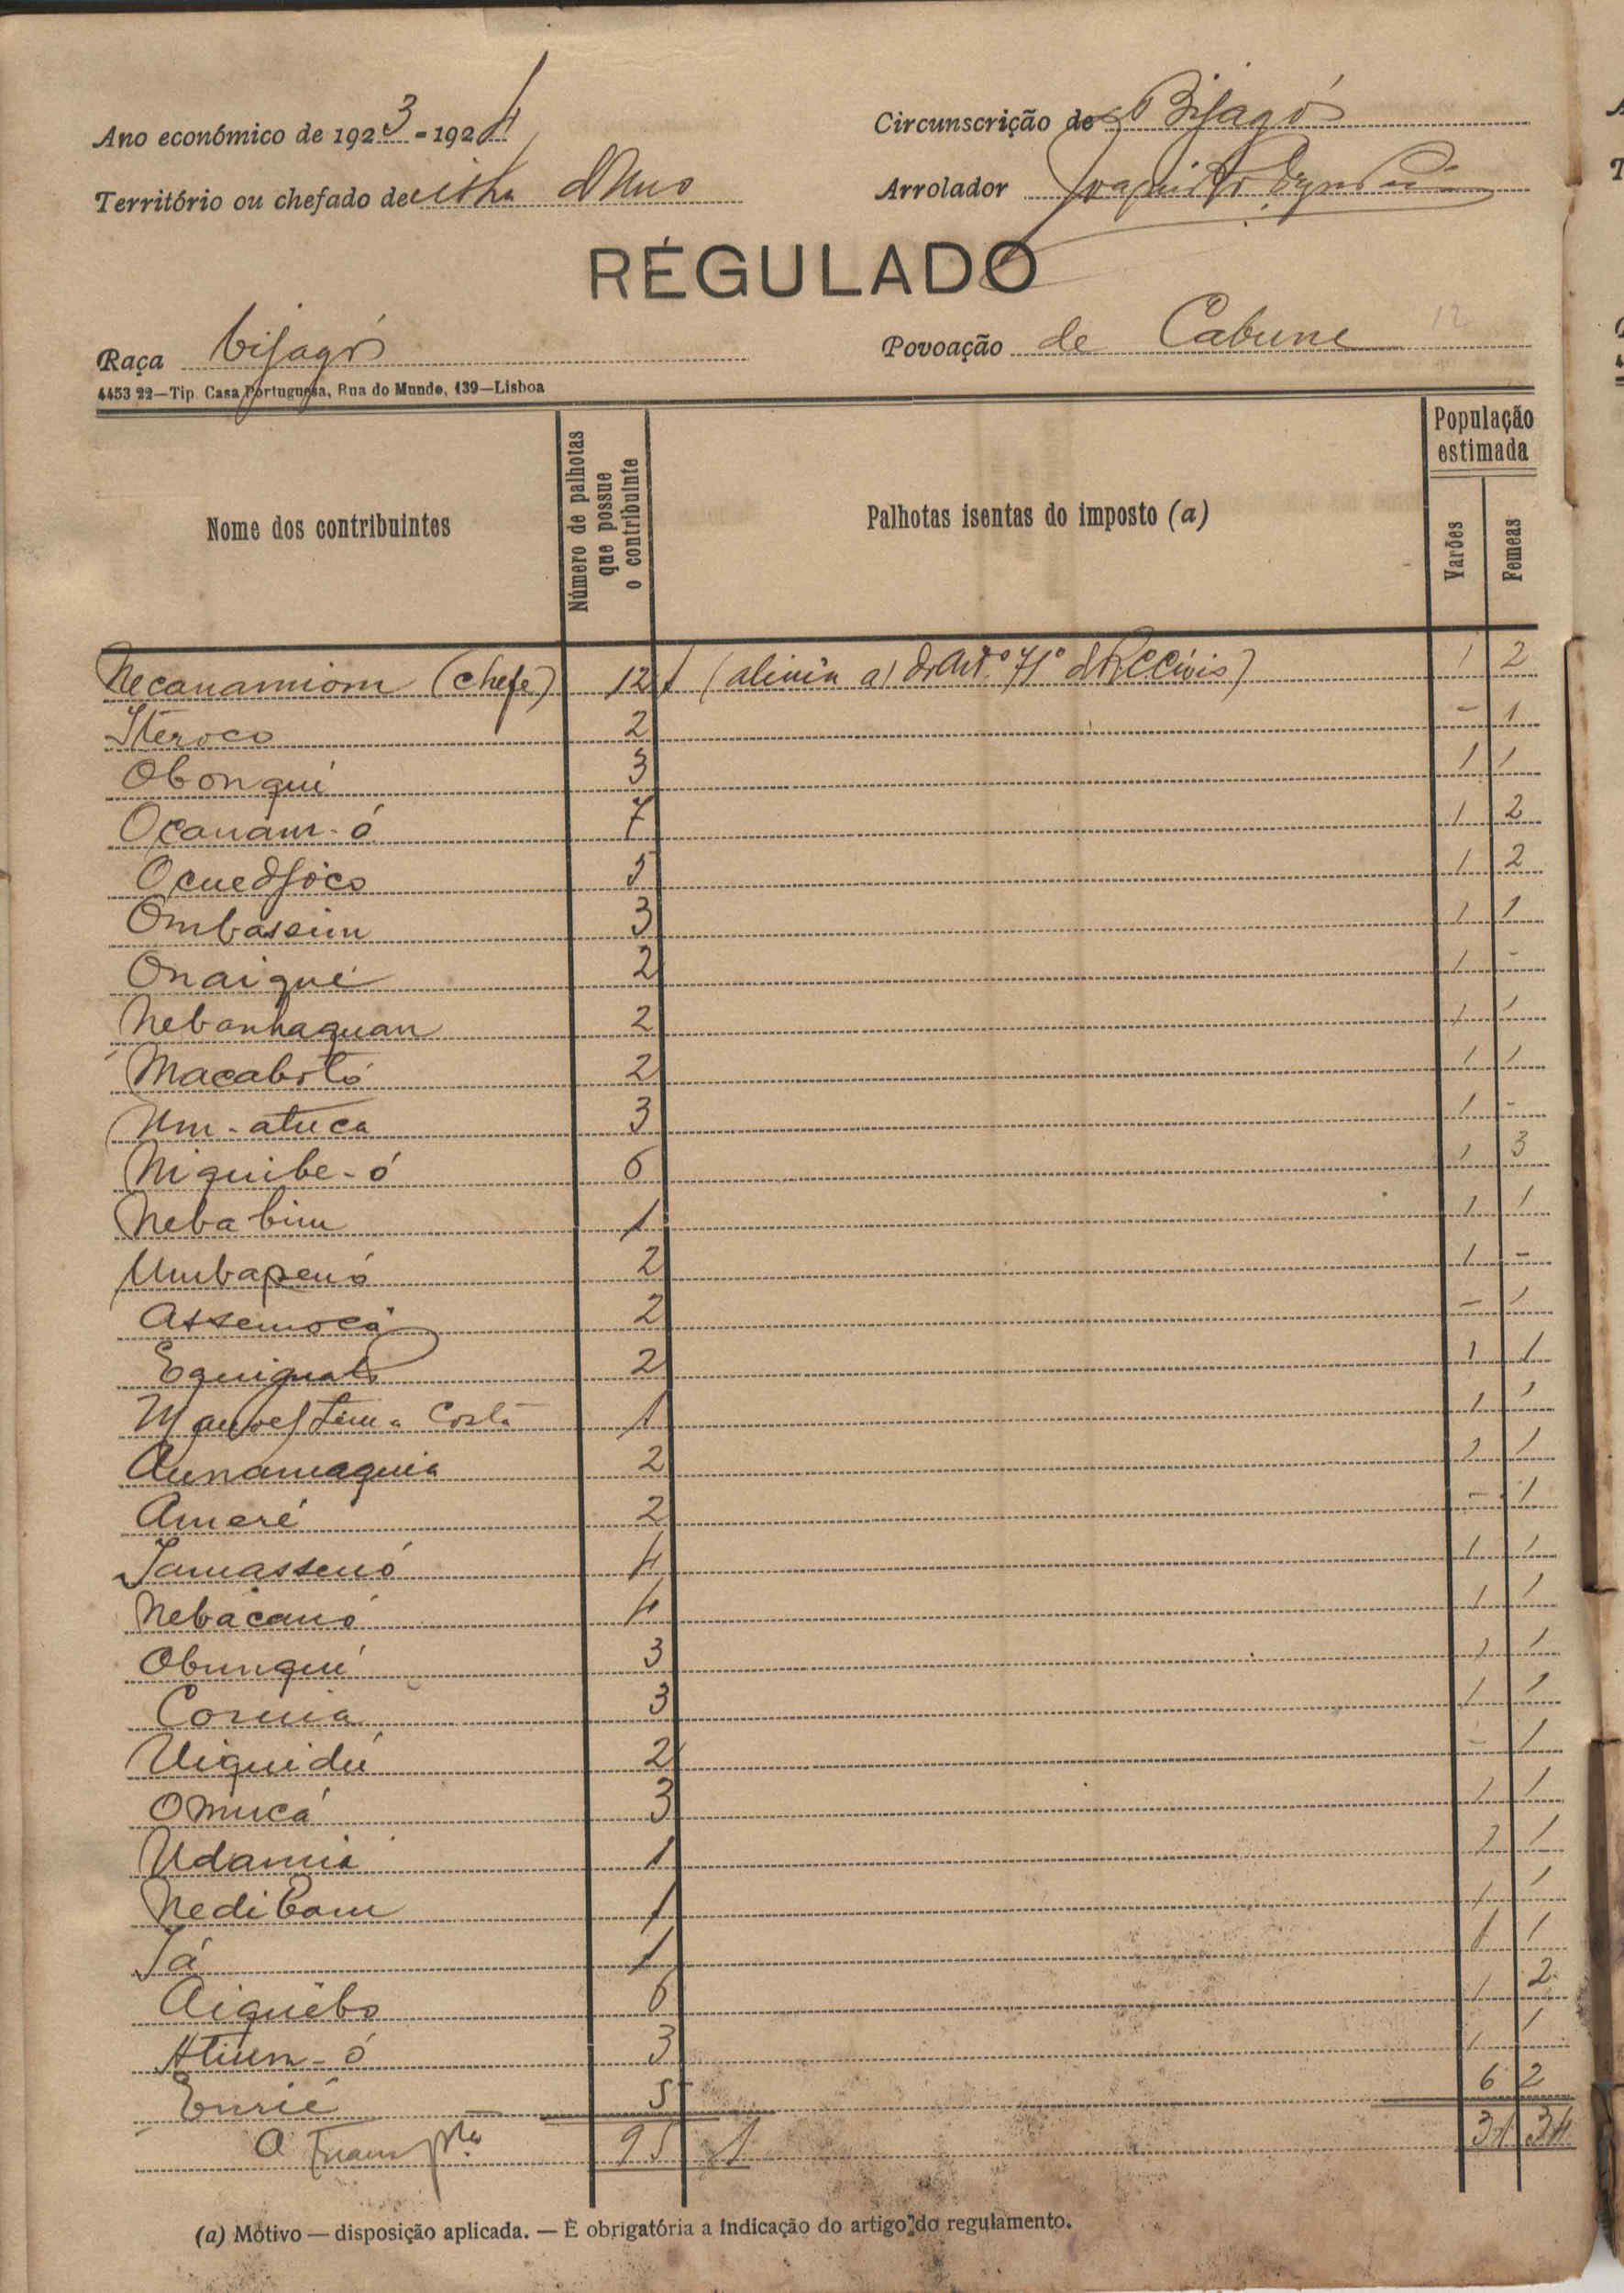 Ano económico de 1923-1924
Circunscrição de Bijagós
Território ou chefado de ilha d'Uno
Arrolador
RÉGULADO
Raça bijagós
Povoação de Cabune
12
4453 22—Tip. Casa Portuguesa, Rua do Mundo, 139—Lisboa
Nome dos contribuintes
Número de palhotas que possue o contribuinte
Palhotas isentas do imposto (a)
População estimada
Varões
Femeas
Necanamiom (chefe) 12 1 (alinia a) do Artº 71º d R. C. Civis) 1 2
Iteroco 2 - 1
Obonqui 3 1 1
Ocanam-ó 7 1 2
Ocuedjóco 5 1 2
Ombasseim 3 1 1
Onaiqué 2 1 -
Nebanhaquan 2 1 1
Macabotó 2 1 1
Um-atuca 3 1 -
Niquibe-ó 6 1 3
Nebabim 1 1 1
Umbapenó 2 1 -
Assemocá 2 - 1
Equiquato 2 1 1
Manoel Lima Costa 1 1 1
Aunamaquia 2 1 1
Ameré 2 - 1
Jamassenó 4 1 1
Nebacanó 4 1 1
Obunqui 3 1 1
Cornia 3 1 1
Uiquidú 2 - 1
Omucá 3 1 1
Udamia 1 1 1
Nedibam 1 1 1
Já 1 1 1
Aiquêbo 6 1 2
Atium-ó 3 1 1
Enrié 5 6 2
A Transpte 95 1 31 34
(a) Motivo — disposição aplicada. — É obrigatória a indicação do artigo do regulamento.